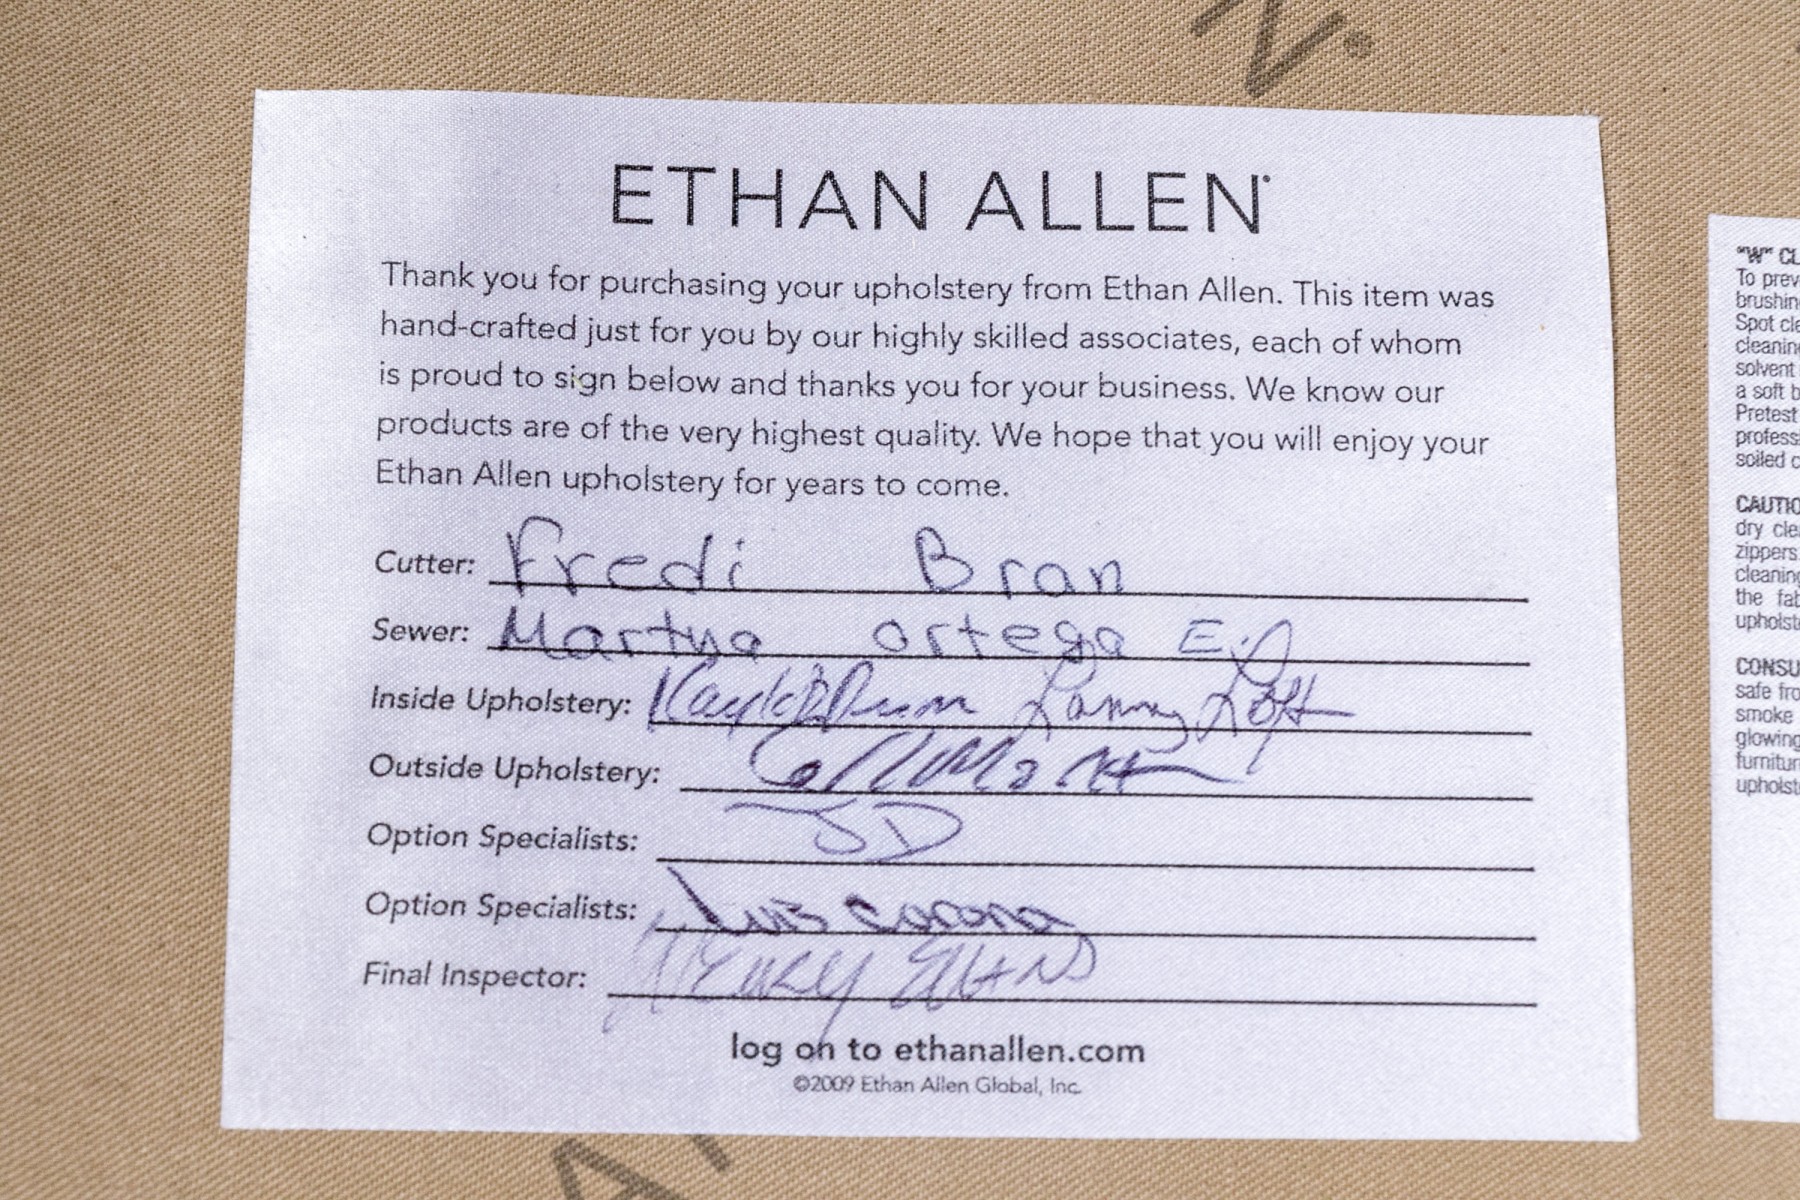 ETHAN ALLEN
Thank you for purchasing your upholstery from Ethan Allen. This item was
hand-crafted just for you by our highly skilled associates, each of whom
is proud to sign below and thanks you for your business. We know our
products are of the very highest quality. We hope that you will enjoy your
Ethan Allen upholstery for years to come.
Cutter: Fredi Bran
Sewer: Martha ortega E.
Inside Upholstery: Lanny
Outside Upholstery:
Option Specialists: JD
Option Specialists: Luis
Final Inspector:
log on to ethanallen.com
©2009 Ethan Allen Global, Inc.
"W" CL
To prev
brushin
Spot cle
cleanin
solvent
a soft b
Pretest
profess
soiled c
CAUTIO
dry cle
zippers.
cleaning
the fab
upholst
CONSU
safe fro
smoke
glowing
furnitur
upholst